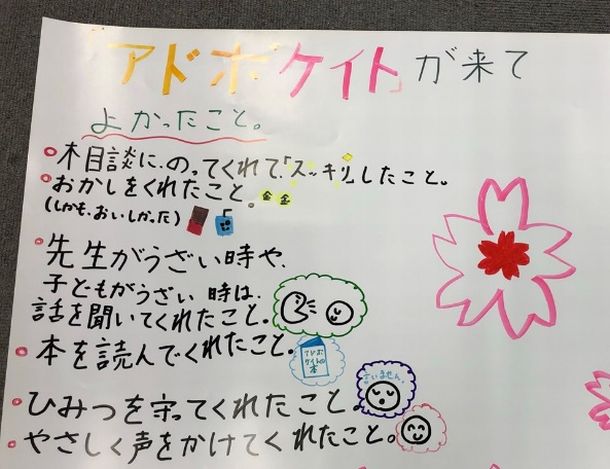 「アドボケイト」が来て
よかったこと。
相談にのってくれて、「スッキリ」したこと。
おかしをくれたこと。
(しかも、おいしかった)
先生がうざい時や、
子どもがうざい時は、
話を聞いてくれたこと。
本を読んでくれたこと。
アドボケイトの本
ひみつを守ってくれたこと。
言いません。
やさしく声をかけてくれたこと。